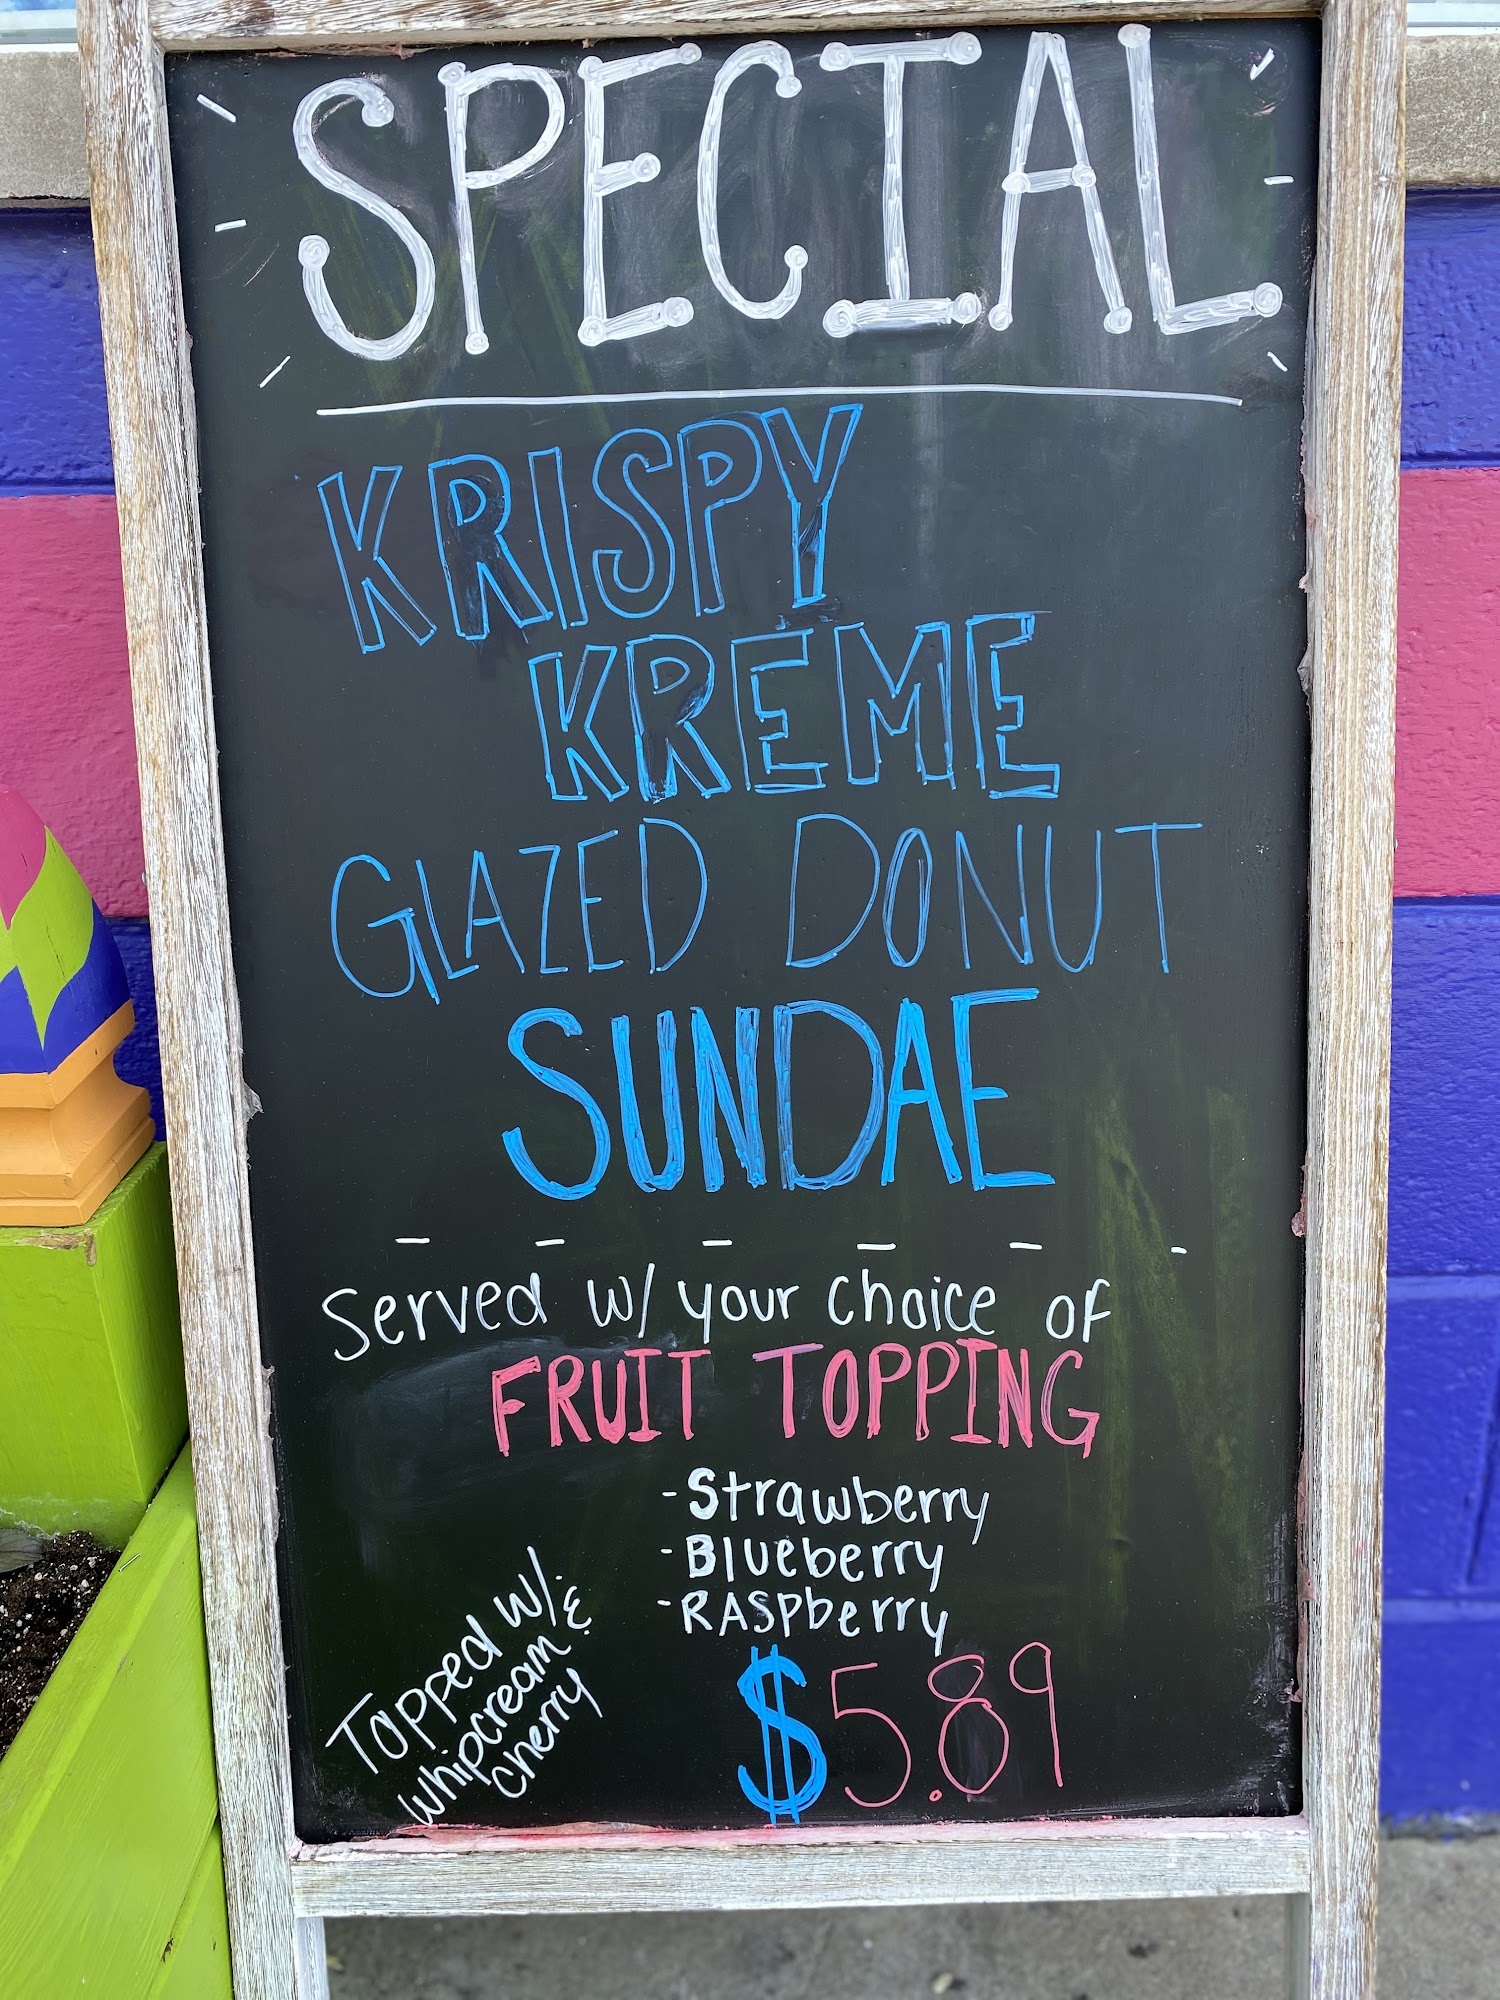 SPECIAL
KRISPY
KREME
GLAZED DONUT
SUNDAE
Served w/ your choice of
FRUIT TOPPING
-Strawberry
-Blueberry
-RASpberry
Topped w/
whipcream &
cherry
$5.89